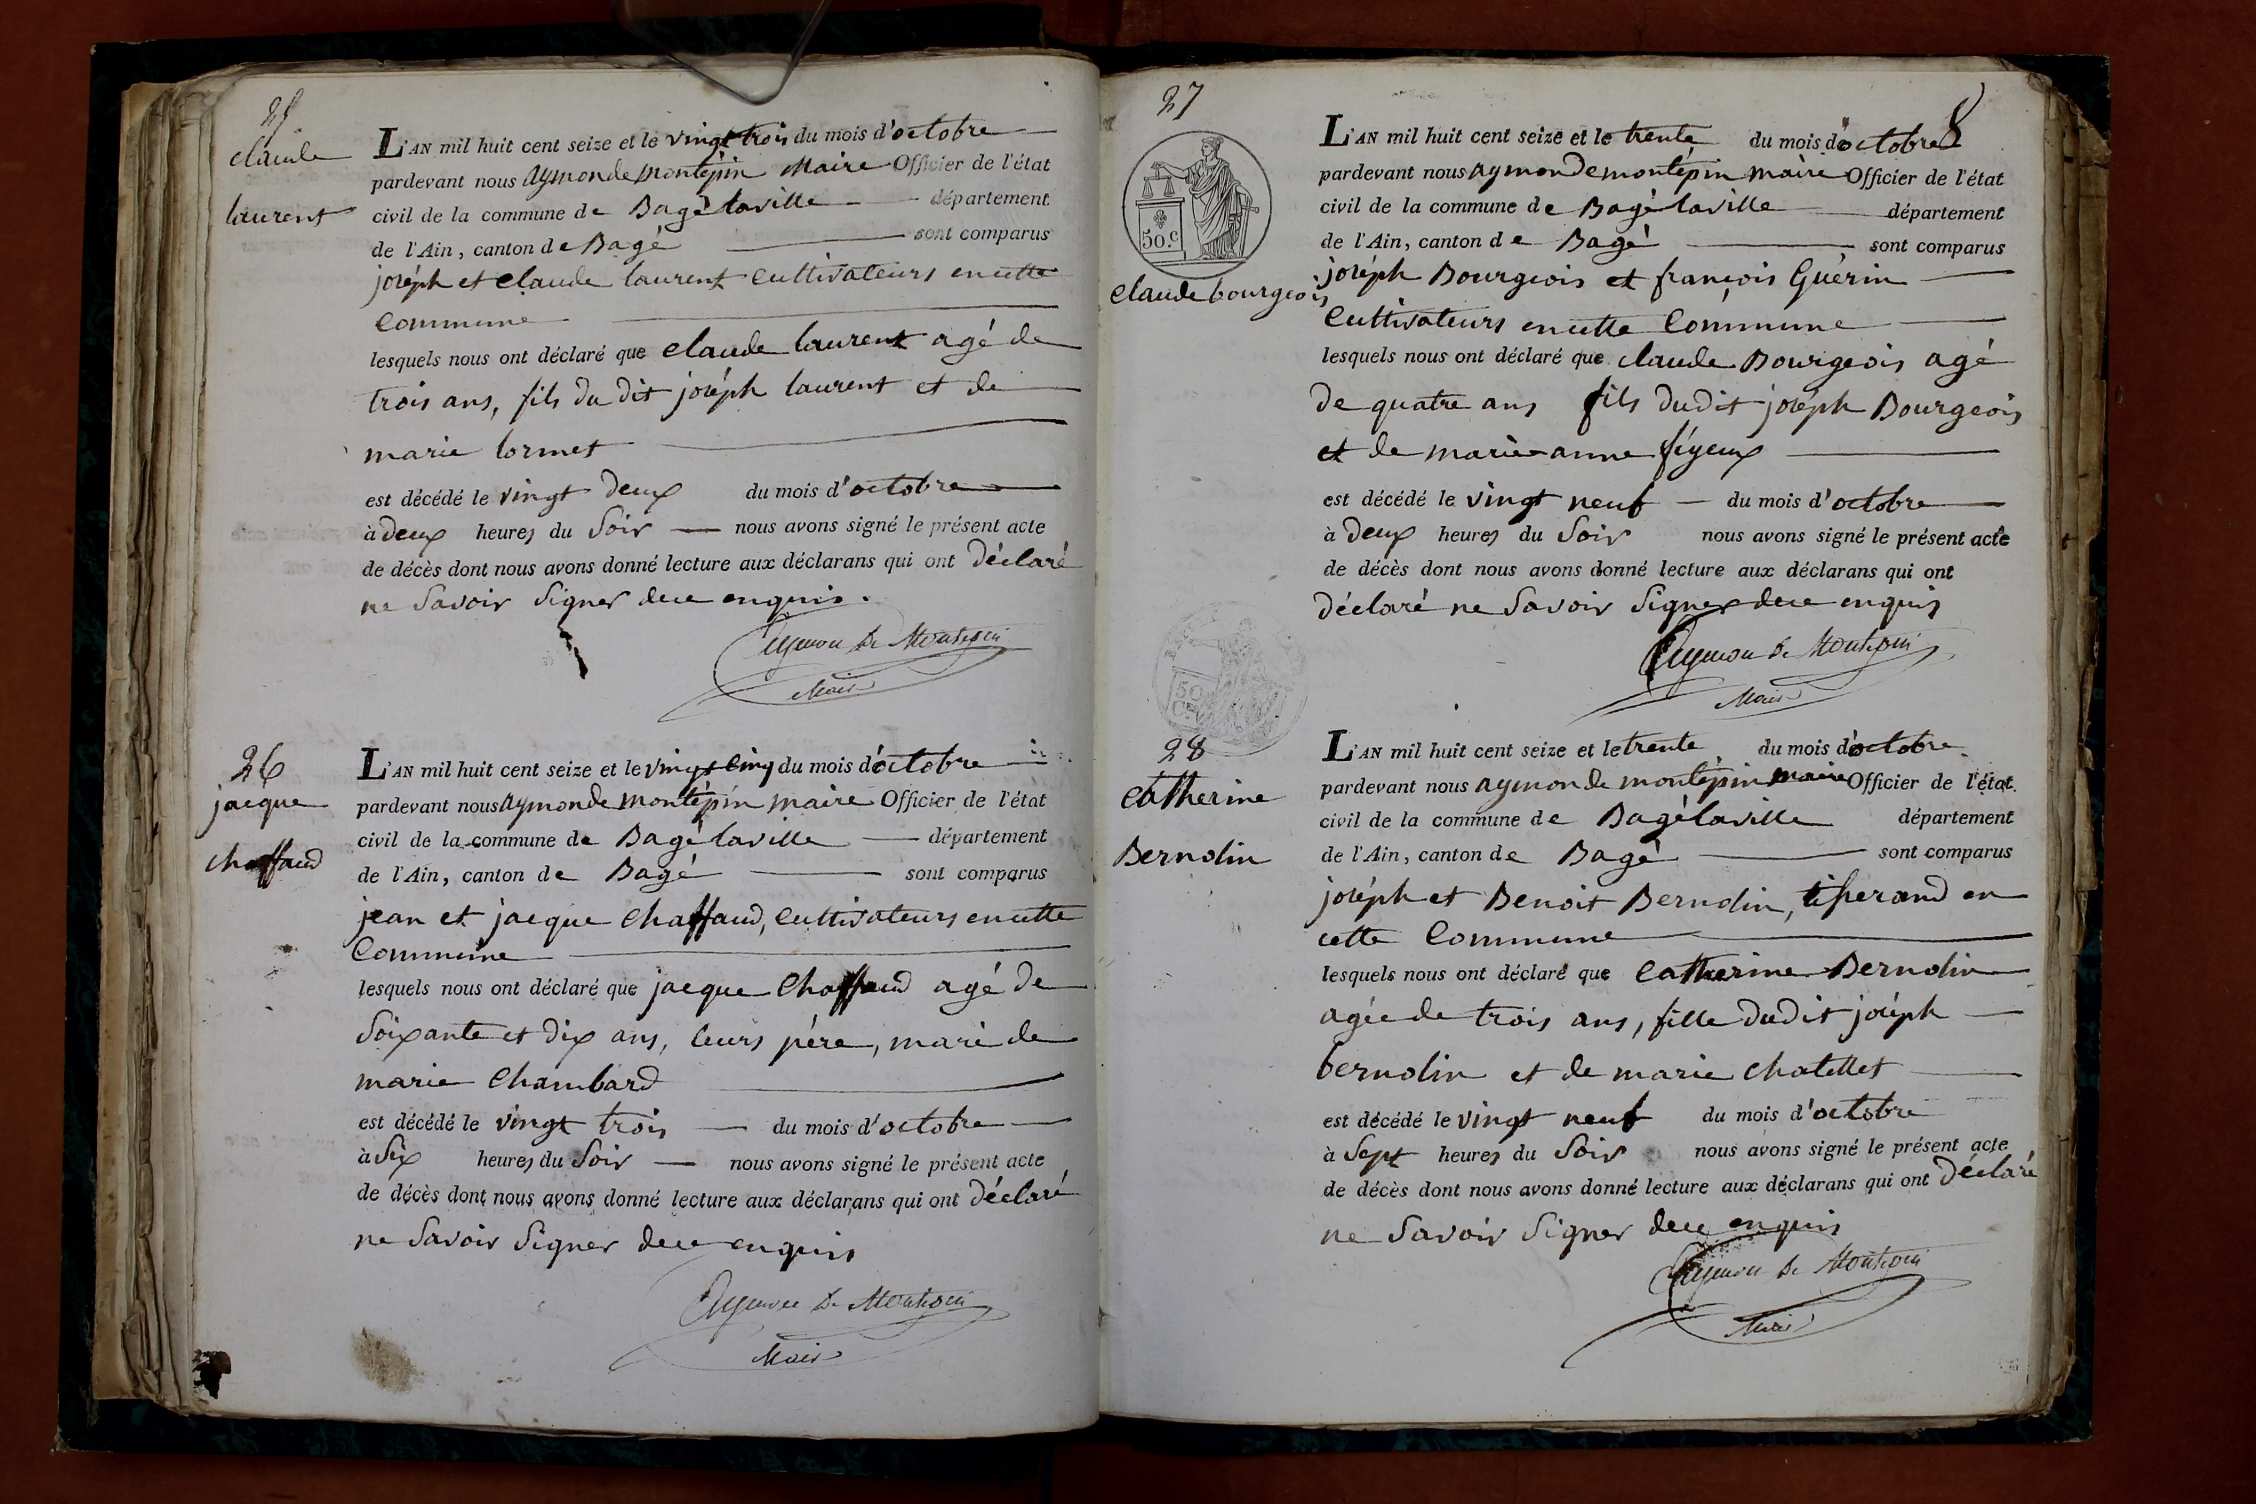 25
claude
laurent
L'AN mil huit cent seize et le vingt trois du mois d'octobre
pardevant nous aymon de montépin Maire Officier de l'état
civil de la commune de Bagé laville département
de l'Ain, canton de Bagé sont comparus
joséph et claude laurent cultivateurs en cette
commune
lesquels nous ont déclaré que claude laurent agé de
trois ans, fils du dit joséph laurent et de
marie lormet
est décédé le vingt deux du mois d'octobre
à deux heures du Soir nous avons signé le présent acte
de décès dont nous avons donné lecture aux déclarans qui ont déclaré
ne Savoir Signer de ce enquis.
Aymon De Montepin
Maire
26
jacque
chaffaud
L'AN mil huit cent seize et le vingt cinq du mois d'octobre
pardevant nous aymon de montépin maire Officier de l'état
civil de la commune de Bagé laville département
de l'Ain, canton de Bagé sont comparus
jean et jacque chaffaud, cultivateurs en cette
Commune
lesquels nous ont déclaré que jacque Chaffaud agé de
Soixante et dix ans, leurs pére, mari de
marie Chambard
est décédé le vingt trois du mois d'octobre
à Six heures du Soir nous avons signé le présent acte
de décès dont nous avons donné lecture aux déclarans qui ont déclaré
ne Savoir Signer de ce enquis
Aymon De Montepin
Maire
27
8
50.c
claude bourgeois
L'AN mil huit cent seize et le trente du mois d'octobre
pardevant nous aymon de montépin maire Officier de l'état
civil de la commune de Bagé laville département
de l'Ain, canton de Bagé sont comparus
joséph Bourgeois et françois Guérin
Cultivateurs en cette Commune
lesquels nous ont déclaré que claude Bourgeois agé
de quatre ans fils dudit joséph Bourgeois
et de marie anne féyeux
est décédé le vingt neuf du mois d'octobre
à deux heures du Soir nous avons signé le présent acte
de décès dont nous avons donné lecture aux déclarans qui ont
déclaré ne Savoir Signer de ce enquis
Aymon De Montepin
Maire
50
Ces
28
Catherine
Bernolin
L'AN mil huit cent seize et le trente du mois d'octobre
pardevant nous aymon de montépin maire Officier de l'état
civil de la commune de Bagé laville département
de l'Ain, canton de Bagé sont comparus
joséph et Benoit Bernolin, tisserand en
cette Commune
lesquels nous ont déclaré que Catherine Bernolin
agée de trois ans, fille dudit joséph
bernolin et de marie chatellet
est décédé le vingt neuf du mois d'octobre
à Sept heures du Soir nous avons signé le présent acte
de décès dont nous avons donné lecture aux déclarans qui ont déclaré
ne Savoir Signer de ce enquis
Aymon De Montepin
Maire